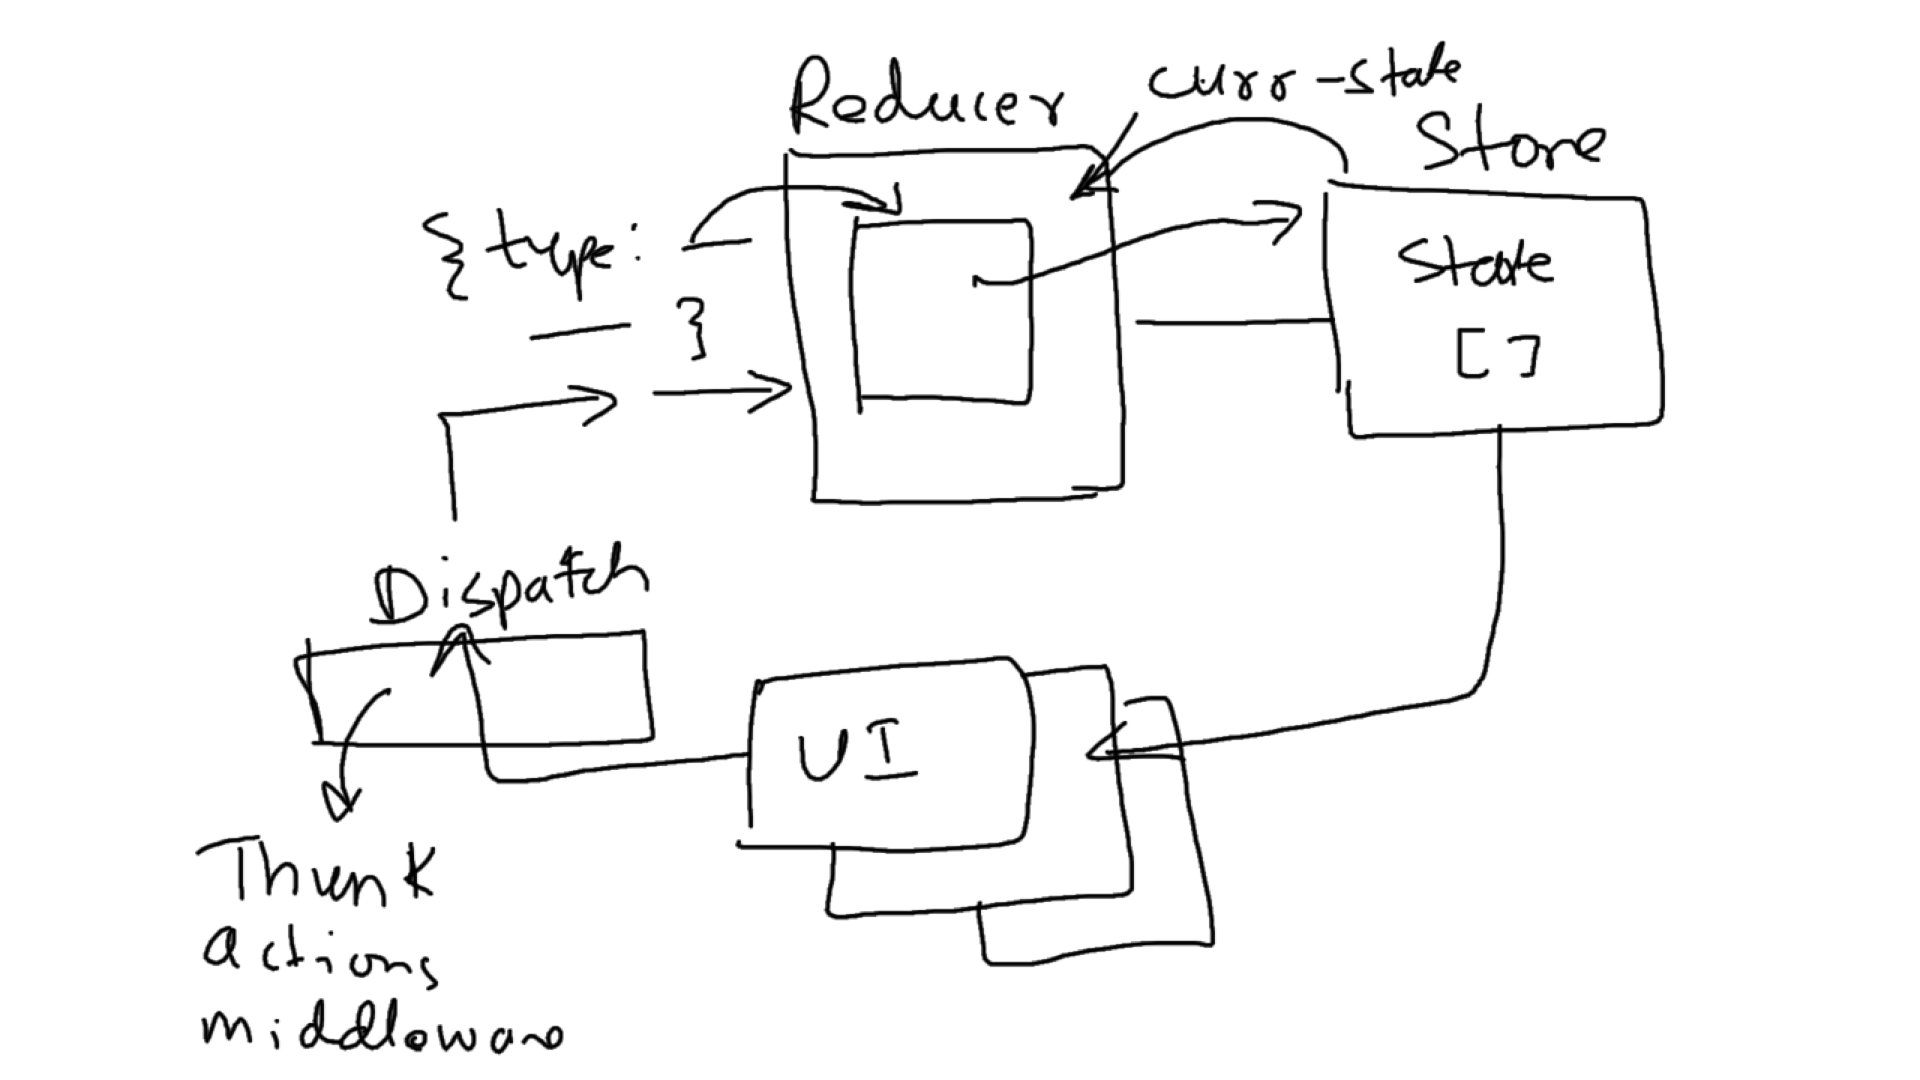 Reducer
curr-state
Store
{ type: —
— }
State
[ ]
Dispatch
UI
Thunk
actions
middleware